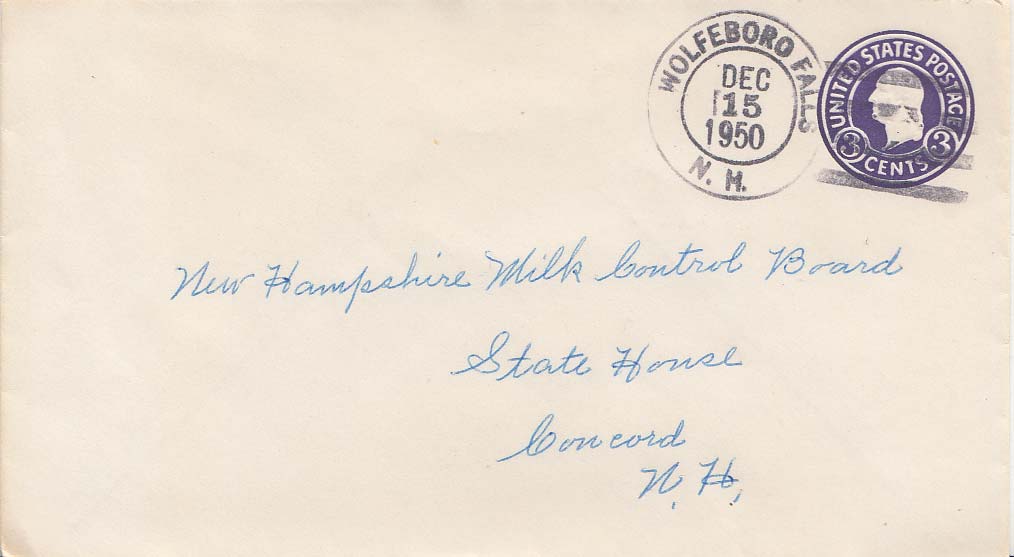 WOLFEBORO FALLS
DEC
15
1950
N. H.
UNITED STATES POSTAGE
3 CENTS 3
New Hampshire Milk Control Board
State House
Concord
N. H.